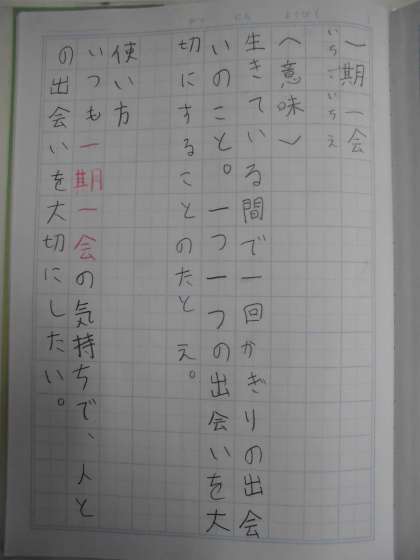 一期一会
いちごいちえ
〈意味〉
生きている間で一回かぎりの出会
いのこと。一つ一つの出会いを大
切にすることのたとえ。
使い方
いつも一期一会の気持ちで、人と
の出会いを大切にしたい。